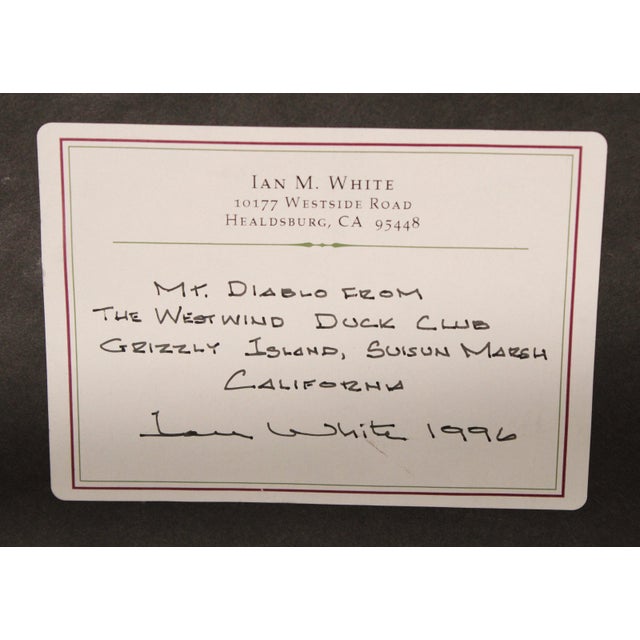 Ian M. White
10177 Westside Road
Healdsburg, CA 95448
Mt. Diablo from
The Westwind Duck Club
Grizzly Island, Suisun Marsh
California
Ian White 1996